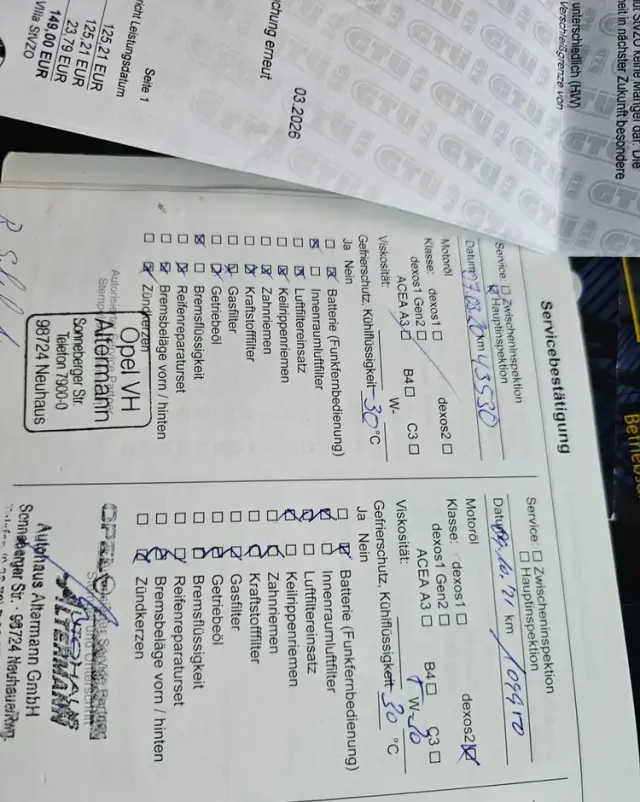 unterschiedlich (HW)
Verschleißgrenze von
heit in nächster Zukunft besondere
GTÜ
chung erneut
03.2026
Seite 1
richt Leistungsdatum
125,21 EUR
125,21 EUR
23,79 EUR
149,00 EUR
VIIIa StVZO
Servicebestätigung
Service: ☐ Zwischeninspektion
☒ Hauptinspektion
Datum km 43530
Motoröl
Klasse: dexos1 ☐ dexos2 ☐
dexos1 Gen2 ☐
ACEA A3 ☐ B4 ☐ C3 ☐
Viskosität: W-
Gefrierschutz, Kühlflüssigkeit -30 °C
Ja Nein
☐ ☒ Batterie (Funkfernbedienung)
☒ ☐ Innenraumluftfilter
☐ ☒ Luftfiltereinsatz
☐ ☒ Keilrippenriemen
☐ ☒ Zahnriemen
☐ ☒ Kraftstofffilter
☐ ☒ Gasfilter
☐ ☒ Getriebeöl
☒ ☐ Bremsflüssigkeit
☐ ☒ Reifenreparaturset
☐ ☒ Bremsbeläge vorn / hinten
☐ ☒ Zündkerzen
Opel VH
Altermann
Sonneberger Str.
Telefon 7900-0
98724 Neuhaus
Service: ☐ Zwischeninspektion
☐ Hauptinspektion
Datum km
Motoröl
Klasse: dexos1 ☐ dexos2 ☒
dexos1 Gen2 ☐
ACEA A3 ☐ B4 ☐ C3 ☐
Viskosität: W-30
Gefrierschutz, Kühlflüssigkeit -30 °C
Ja Nein
☐ ☒ Batterie (Funkfernbedienung)
☒ ☐ Innenraumluftfilter
☒ ☐ Luftfiltereinsatz
☒ ☐ Keilrippenriemen
☐ ☒ Zahnriemen
☐ ☒ Kraftstofffilter
☐ ☒ Gasfilter
☐ ☒ Getriebeöl
☐ ☒ Bremsflüssigkeit
☐ ☒ Reifenreparaturset
☐ ☒ Bremsbeläge vorn / hinten
☐ ☒ Zündkerzen
OPEL
AUTOHAUS
ALTERMANN
Autohaus Altermann GmbH
Sonneberger Str. · 98724 Neuhaus/Rwg.